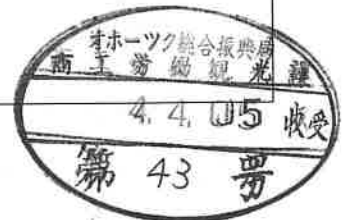 オホーツク総合振興局
商工労働観光課
4.4.05 収受
第 43 号